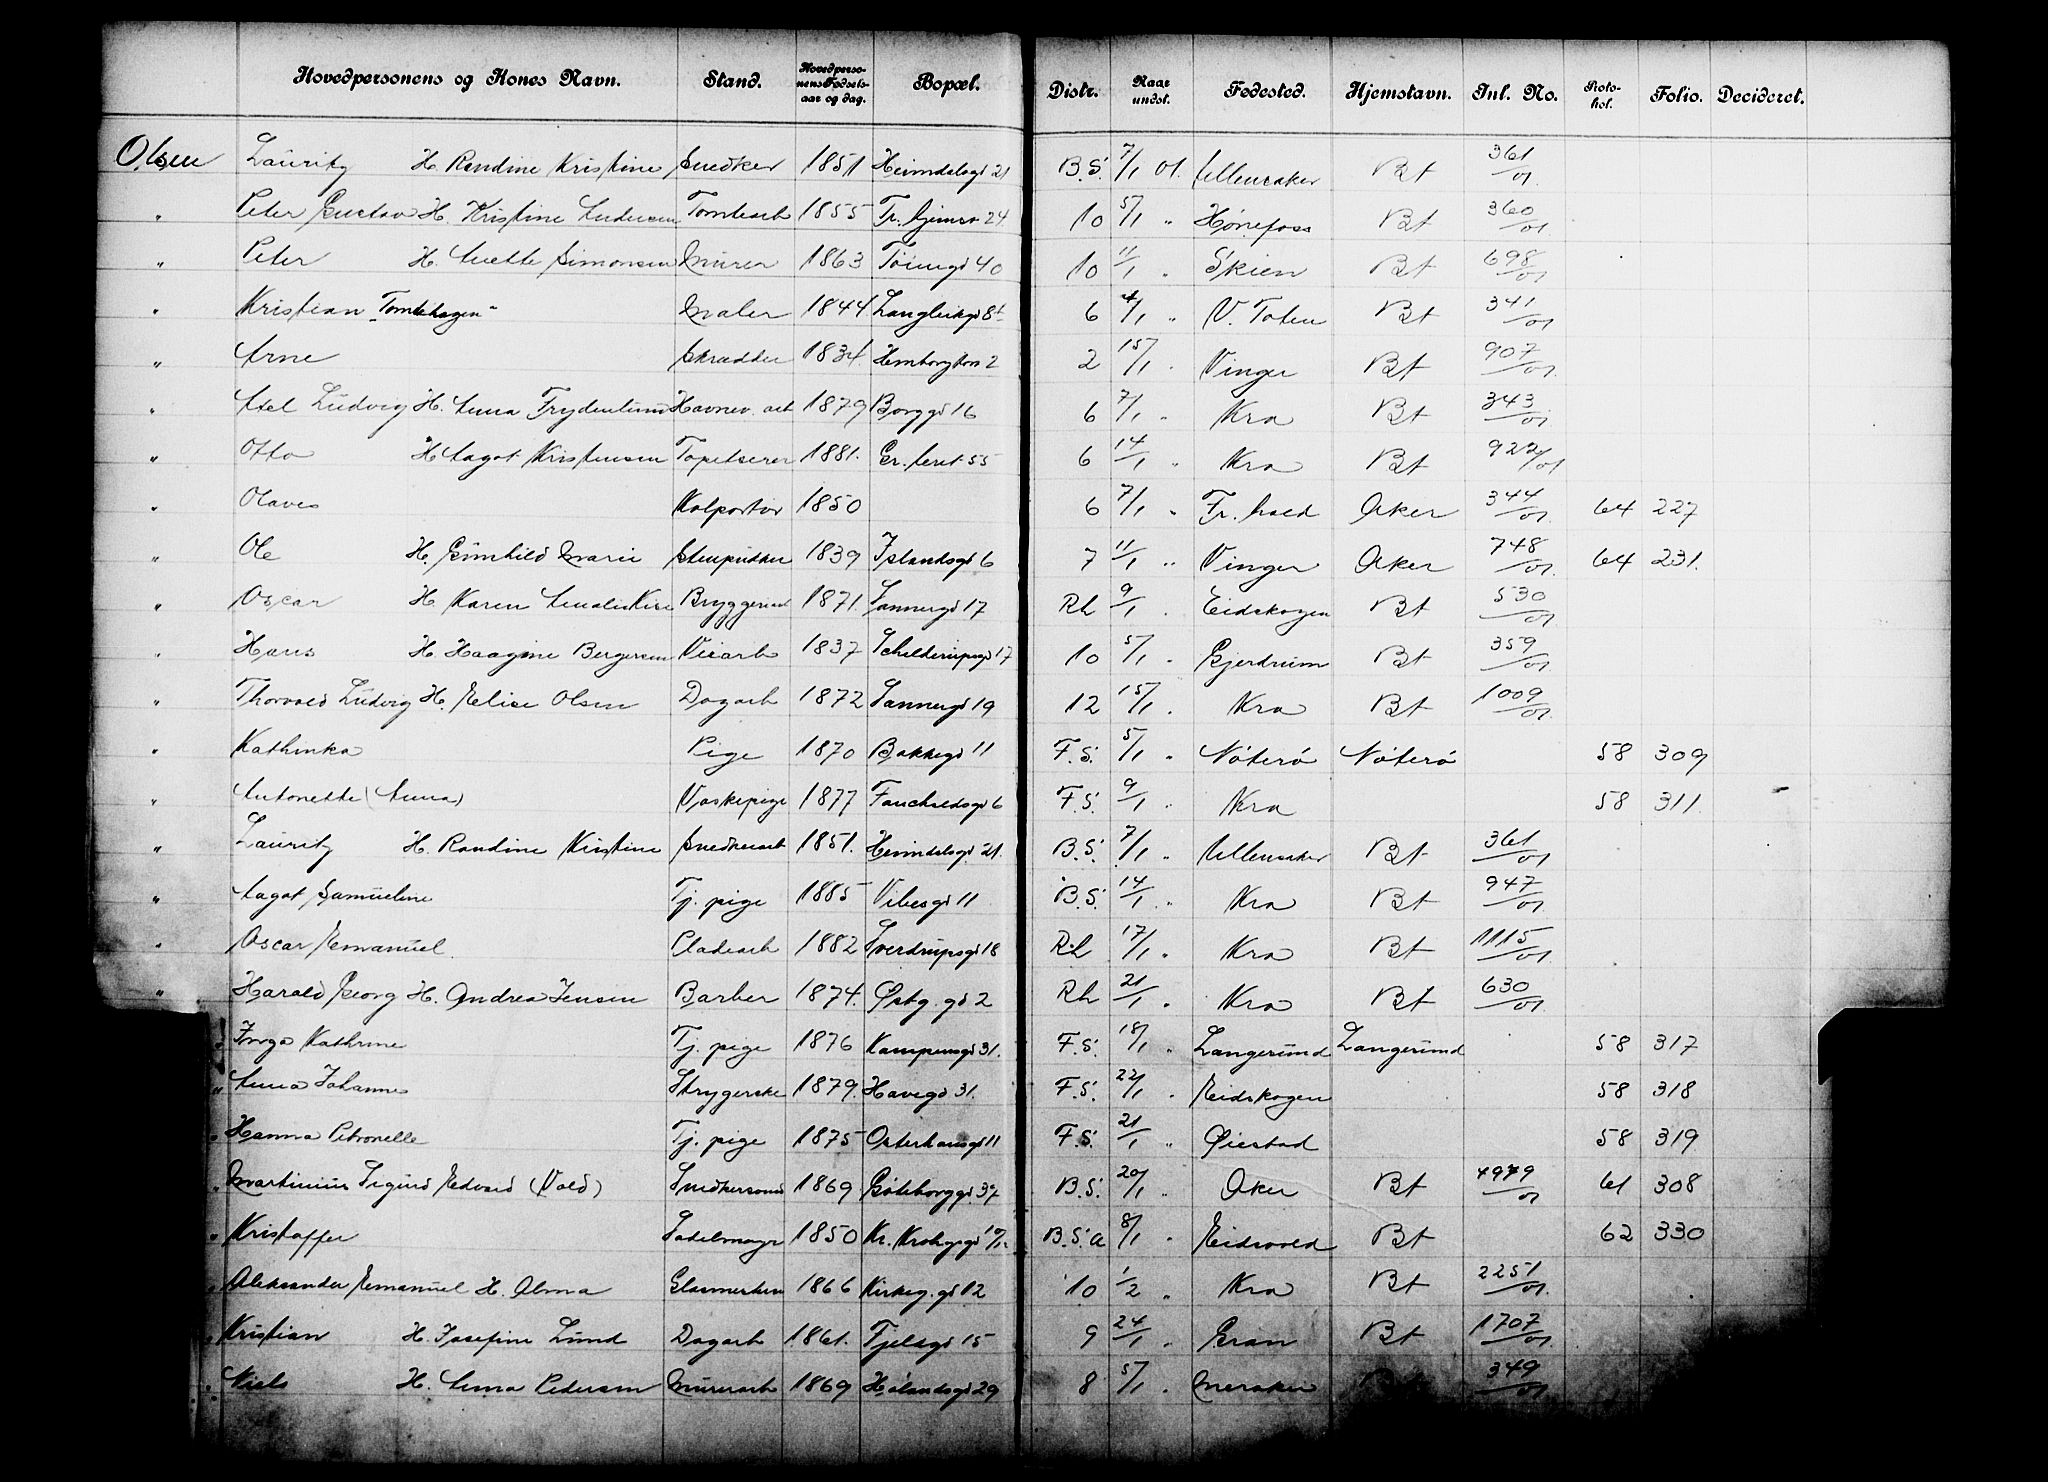 Hovedpersonens og Kones Navn. Stand. Hovedpersonens Fødselsaar og dag. Bopæl. Distr. Naar undst. Fødested. Hjemstavn. Jnl. No. Protokol. Folio. Decideret.
Olsen Lauritz H. Randine Kristine Snedker 1851 Heimdalsgd 21 B.S. 7/1 01. Ullensaker Bt 361/01
" Peter Gustav H. Kristine Andersen Tomtearb 1855 24 10 5/1 " Hønefoss Bt 360/01
" Peter H. Anette Simonsen Murer 1863 Tøiengd 40 10 11/1 " Skien Bt 698/01
" Kristian "Tomtehagen" Maler 1844 Langleiksgd 8 6 4/1 " V. Toten Bt 341/01
" Arne Skrædder 1834. 2 2 15/1 " Vinger Bt 907/01.
" Axel Ludvig H. Anna Frydenlund Havnev. arb 1879 Borggd 16 6 7/1 " Kra Bt 343/01
" Otto H. Aagot Kristensen Tapetserer 1881. Gr. leret 55 6 14/1 " Kra Bt 922/01
" Olaves Kolportør 1850 6 7/1 " Fr. hald Aker 344/01 64 227
" Ole H. Gunhild Marie Stenpukker 1839 Islandsgd 6 7 11/1 " Vinger Aker 748/01. 64 231.
" Oscar H. Karen Bryggeriarb 1871. Sannergd 17 Rh 9/1 " Eidskogen Bt 530/01
" Hans H. Haagine Bergersen Veiarb 1837 Schilderupsgd 17 10 5/1 " Gjerdrum Bt 359/01
" Thorvald Ludvig H. Elise Olsen Dagarb 1872 Sannergd 19 12 15/1 " Kra Bt 1009/01.
" Kathinka Pige 1870 Bakkegd 11 F.S. 5/1 " Nøterø Nøterø 58 309
" Antonette (Anna) Vaskepige 1877 Fauchaldsgd 6 F.S. 9/1 " Kra 58 311.
" Lauritz H. Randine Kristine Snedkerarb 1851. Heimdalsgd 21. B.S. 7/1 " Ullensaker Bt 361/01
" Aagot Samueline Tj. pige 1885 Vibesgd 11 B.S. 14/1 " Kra Bt 947/01.
" Oscar Emanuel. Pladearb 1882 Sverdrupsgd 18 Rh 17/1 " Kra Bt 1115/01.
" Harald Georg H. Andrea Jensen Barber 1874. Østg. gd 2 Rh 21/1 " Kra Bt 630/01
" Inga Kathrine Tj. pige 1876 Kampensgd 31. F.S. 18/1 " Langesund Langesund 58 317
" Anna Johanne Strygerske 1879. Havegd 31. F.S. 22/1 " Eidskogen 58 318
" Hanna Petronelle Tj. pige 1875 Osterhausgd 11 F.S. 21/1 " Øiestad 58 319
" Martinius Sigurd Edvard (Vold) Snedkersvend 1869 Gøteborggd 37 B.S. 20/1 " Aker Bt 4979/01 61 308
" Kristoffer Sadelmager 1850 Kr. Kroghsgd B.S.a 8/1 " Eidsvold Bt 62 330
" Aleksander Emanuel H. Alma Glasmester 1866 Kirkeg. gd 12 10 1/2 " Kra Bt 2251/01.
" Kristian H. Josefine Lund Dagarb 1861. Fjeldgd 15 9 24/1 " Gran Bt 1707/01
" Niels H. Anna Pedersen Murerarb 1869 Hølandsgd 29 8 5/1 " Meraker Bt 349/01